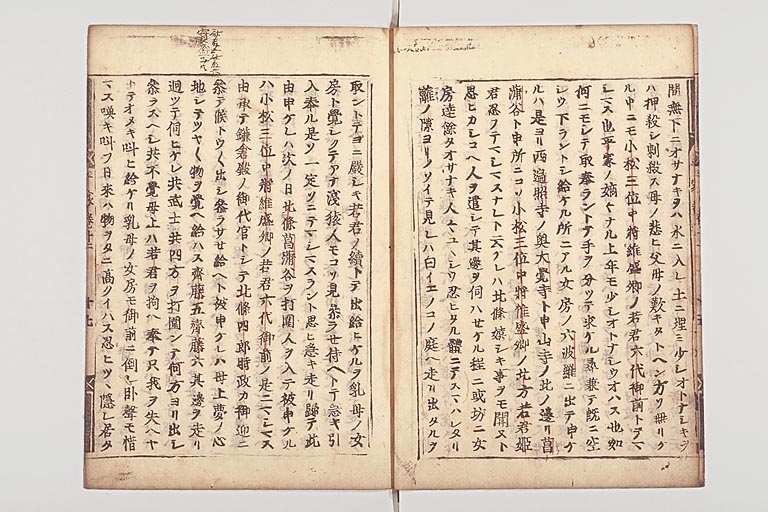 間無下ニオサナキヲハ水ニ入レ土ニ埋ミ少シオトナシキヲ
ハ押殺シ刺殺ス母ノ悲ヒ父母ノ歎キタトヘン方ソ無リケ
ル中ニモ小松三位中将維盛卿ノ若君六代御前トテマ
シマス也平家ノ嫡々ナル上年モ少シオトナシウオハス也如
何ニモシテ取奉ラントテ手ヲ分ツテ求ケル尋兼テ既ニ空
シウ下ラントシ給ケル所ニアル女房ノ六波羅ニ出テ申ケ
ルハ是ヨリ西遍照寺ノ奥大覺寺ト申山寺ノ北ノ邊リ菖
蒲谷ト申所ニコソ小松三位中将維盛卿ノ北方若君姫
君忍ステマシマスナレト云ケレハ北條嬉シキ事ヲモ聞ヌト
思ヒカシコヘ人ヲ遣シテ其邊ヲ伺ハせケル程ニ或坊ニ女
房達餘タオサナキ人々ユヽシウ忍ヒタル體ニテスマハレタリ
籬ノ隙ヨリノソイテ見レハ白イエノコノ庭ヘ走リ出タルヲ
取ントテヨニ嚴シキ若君ノ續テ出給ヒケルヲ乳母ノ女
房ト覺シクテアナ淺猿人モコソ見奈ラせ侍ヘトテ急キ引
入奉ル是ソ一定ソニテマシマスラント思ヒ急キ走リ歸テ此
由申ケレハ次ノ日北條菖蒲谷ヲ打圍人ヲ入テ被申ケル
ハ小松三位中将維盛卿ノ若君六代御前ノ是ニマシマス
由承テ鎌倉殿ノ御代官トシテ北條四郎時政カ御迎ニ
参テ候トウ〳〵出シ参ラサせ給ヘト被申ケレハ母上夢ノ心
地シテツヤ〳〵物ヲ覺ヘ給ハス齋藤五齋藤六其邊ヲ走リ
廻ツテ伺ヒケレ共武士共四方ヲ打圍シテ何方ヨリ出シ
参ラスヘシ共不覺母上ハ若君ヲ拘ヘ奉テ只我ヲ失ヘヤ
トテオメキ叫ヒ給ケリ乳母ノ女房モ御前ニ倒レ卧聲モ惜
マス喚キ叫フ日来ハ物ヲタニ高クイハス忍ヒツヽ隠レ居タ